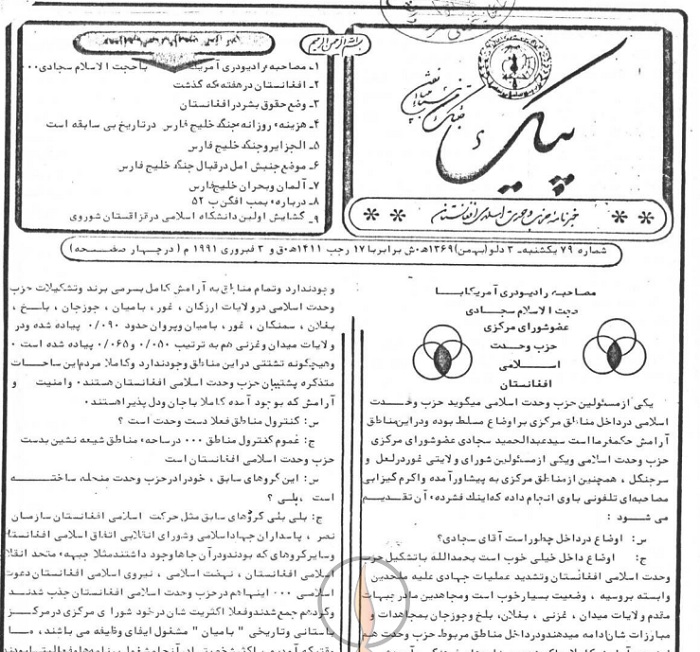 بسم الله الرحمن الرحیم
پیک
خبرنامه حزب وحدت اسلامی افغانستان
۱ـ مصاحبه رادیودری آمریکا باحجت الاسلام سجادی...
۲ـ افغانستان درهفته که گذشت
۳ـ وضع حقوق بشردرافغانستان
۴ـ هزینه روزانه جنگ خلیج فارس درتاریخ بی سابقه است
۵ـ الجزایروجنگ خلیج فارس
۶ـ موضع جنبش امل درقبال جنگ خلیج فارس
۷ـ آلمان وبحران خلیج فارس
۸ـ درباره بمب افگن ب ۵۲
۹ـ گشایش اولین دانشگاه اسلامی درقزاقستان شوروی
شماره ۷۹ یکشنبه ـ ۳ دلو (بهمن) ۱۳۶۹ه‍.ش برابربا ۱۷ رجب ۱۴۱۱ه‍.ق و ۳ فبروری ۱۹۹۱ م ( درچهار صفحه )
مصاحبه رادیودری آمریکابا
حجت الاسلام سجادی
عضوشورای مرکزی
حزب وحدت
اسلامی
افغانستان
یکی ازمسئولین حزب وحدت اسلامی میگوید حزب وحدت
اسلامی درداخل مناطق مرکزی براوضاع مسلط بوده ودراین مناطق
آرامش حکمفرما است سیدعبدالحمید سجادی عضوشورای مرکزی
حزب وحدت اسلامی ویکی ازمسئولین شورای ولایتی غوردرلعل و
سرجنگل ، همچنین ازمناطق مرکزی به پیشاورآمده واکرم گیزابی
مصاحبه ای تلفونی باوی انجام داده که اینک فشرده آن تقدیم
می شود :
س: اوضاع درداخل چطوراست آقای سجادی؟
ج: اوضاع داخل خیلی خوب است بحمدالله باتشکیل حزب
وحدت اسلامی افغانستان وتشدید عملیات جهادی علیه ملحدین
وابسته بروسیه ، وضعیت بسیارخوب است ومجاهدین مادرجبهات
مقدم ولایات میدان ، غزنی ، بغلان، بلخ وجوزجان بمجاهدات و
مبارزات شان ادامه میدهند ودرداخل مناطق مربوط حزب وحدت هم
وجودندارد وتمام مناطق به آرامش کامل بسرمی برند وتشکیلات حزب
وحدت اسلامی درولایات ارزگان ، غور، بامیان ، جوزجان ، بلخ ،
بغلان ، سمنگان ، غور، بامیان وپروان حدود ۰/۰۹۰ پیاده شده ودر
ولایات میدان وغزنی هم به ترتیب ۰/۰۵۰ و ۰/۰۶۵ پیاده شده است .
وهیچگونه تشتتی دراین مناطق وجودندارد وکاملا مردم این ساحات
متذکره پشتیبان حزب وحدت اسلامی افغانستان هستند. وامنیت و
آرامش که بوجود آمده کاملا باجان ودل پذیراهستند.
س: کنترول مناطق فعلا دست وحدت است ؟
ج: عموم کنترول مناطق ... درساحه مناطق شیعه نشین بدست
حزب وحدت اسلامی افغانستان است
س: این گروهای سابق ، خودرادرحزب وحدت منحله ساخته
است ، بلی ؟
ج: بلی بلی گروهای سابق مثل حرکت اسلامی افغانستان سازمان
نصر ، پاسداران جهاداسلامی وشورای انقلابی اتفاق اسلامی افغانستان
وسایرگروهای که بودندودرآن جاهاوجود داشتندمثلا جبهه متحد انقلاب
اسلامی افغانستان ، نهضت اسلامی ، نیروی اسلامی افغانستان دعوت
اسلامی ... اینهاهم درحزب وحدت اسلامی افغانستان جذب شدند
وگردهم جمع شدندوفعلا اکثریت شان درخود شورای مرکزی درمرکز
باستانی وتاریخی " بامیان " مشغول ایفای وظیفه می باشند، ما